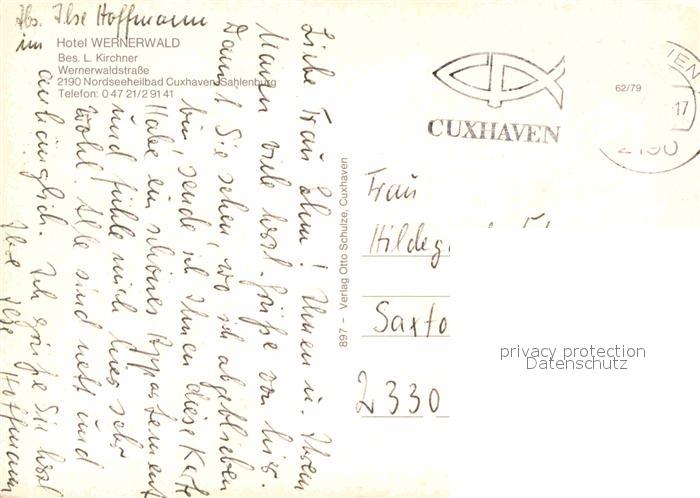 Abs. Ilse Hoffmann
im
Hotel WERNERWALD
Bes. L. Kirchner
Wernerwaldstraße
2190 Nordseeheilbad Cuxhaven-Sahlenburg
Telefon: 0 47 21/2 91 41
Liebe Frau Ohm! Ihnen u. Ihrem
Mann viele herzl. Grüße von hier.
Damit Sie sehen, wo ich abgeblieben
bin, sende ich Ihnen diese Karte
Habe ein schönes Appartement
und fühle mich hier sehr
wohl. Alle sind nett und
anhänglich. Ich grüße Sie herzl
Ihre Ilse Hoffmann
897 - Verlag Otto Schulze, Cuxhaven
CUXHAVEN
62/79
-17
2190
Frau
Hildeg
Saxto
2330
privacy protection
Datenschutz